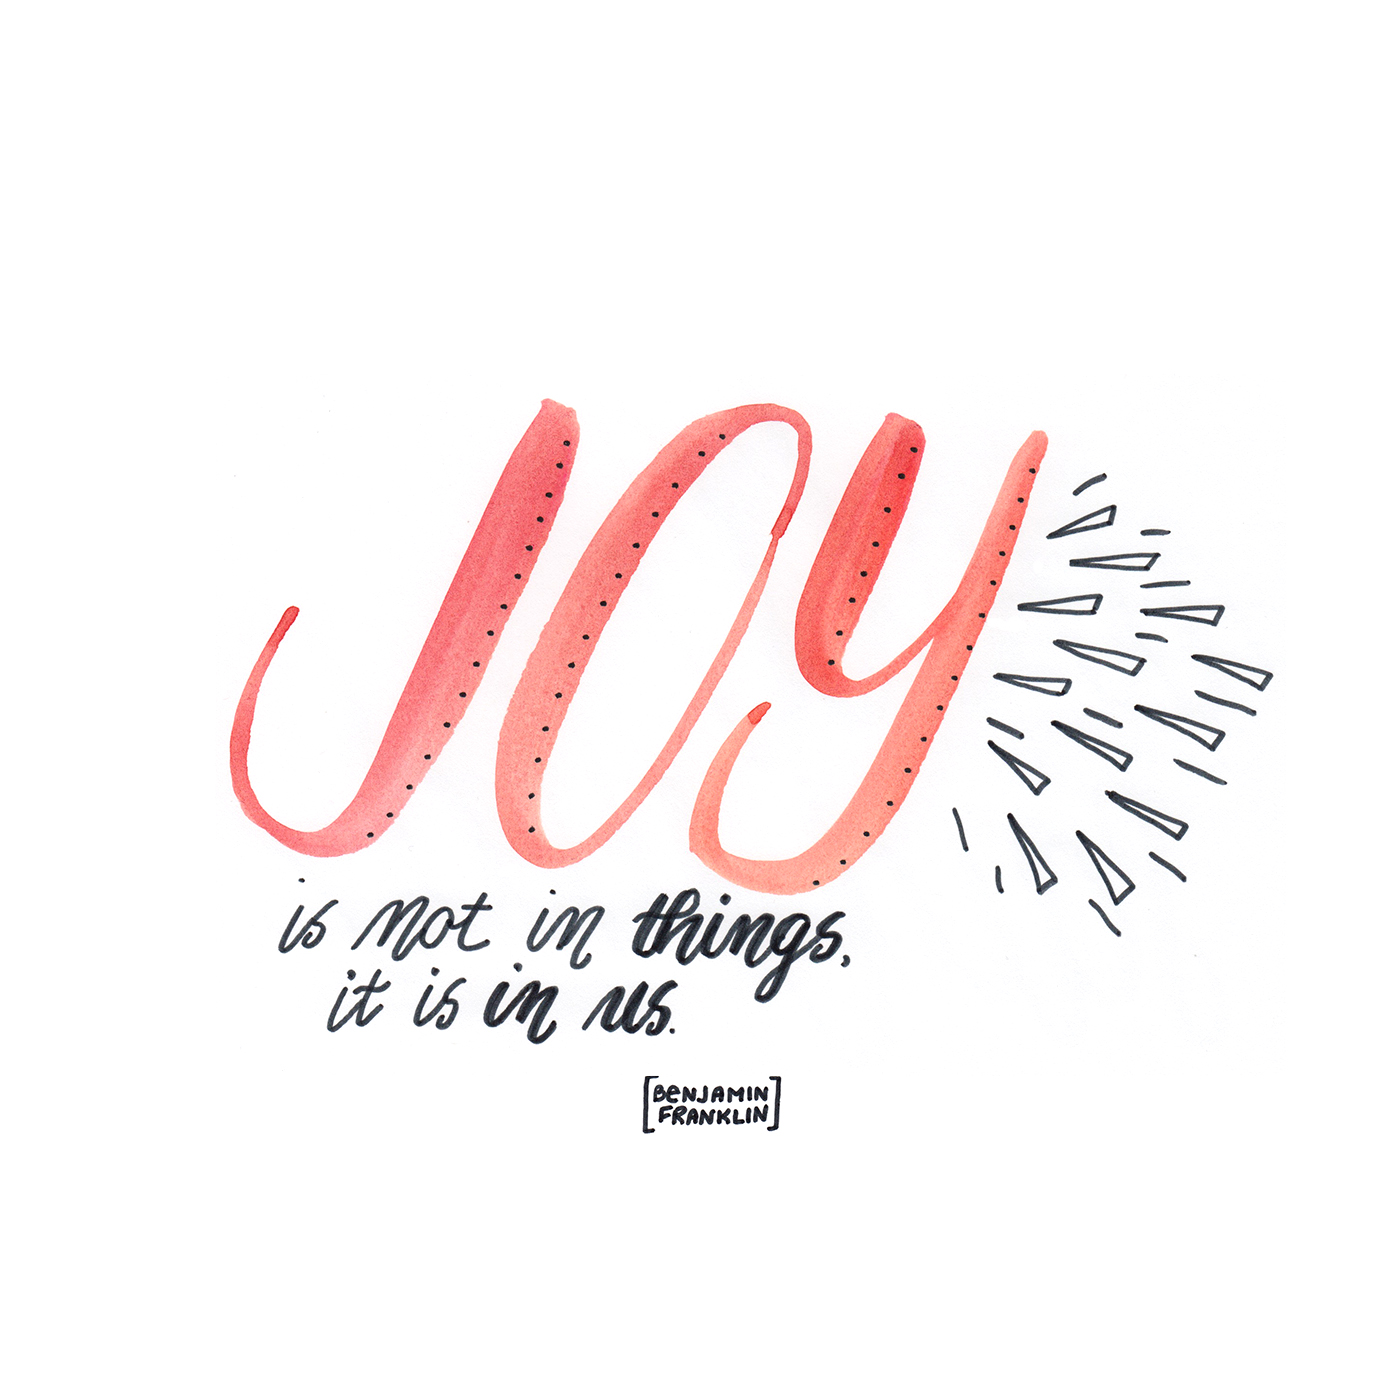 JOY
is not in things,
it is in us.
[BENJAMIN
FRANKLIN]